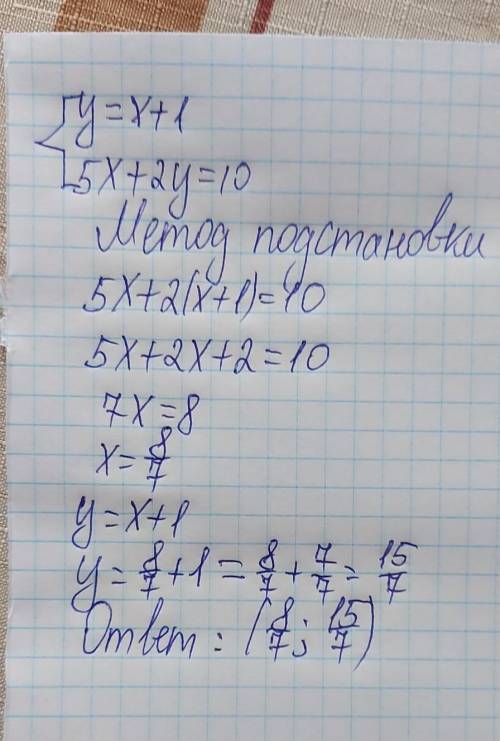 y=x+1
5x+2y=10
Метод подстановки
5x+2(x+1)=10
5x+2x+2=10
7x=8
x=8/7
y=x+1
y=8/7+1=8/7+7/7=15/7
Ответ: (8/7; 15/7)